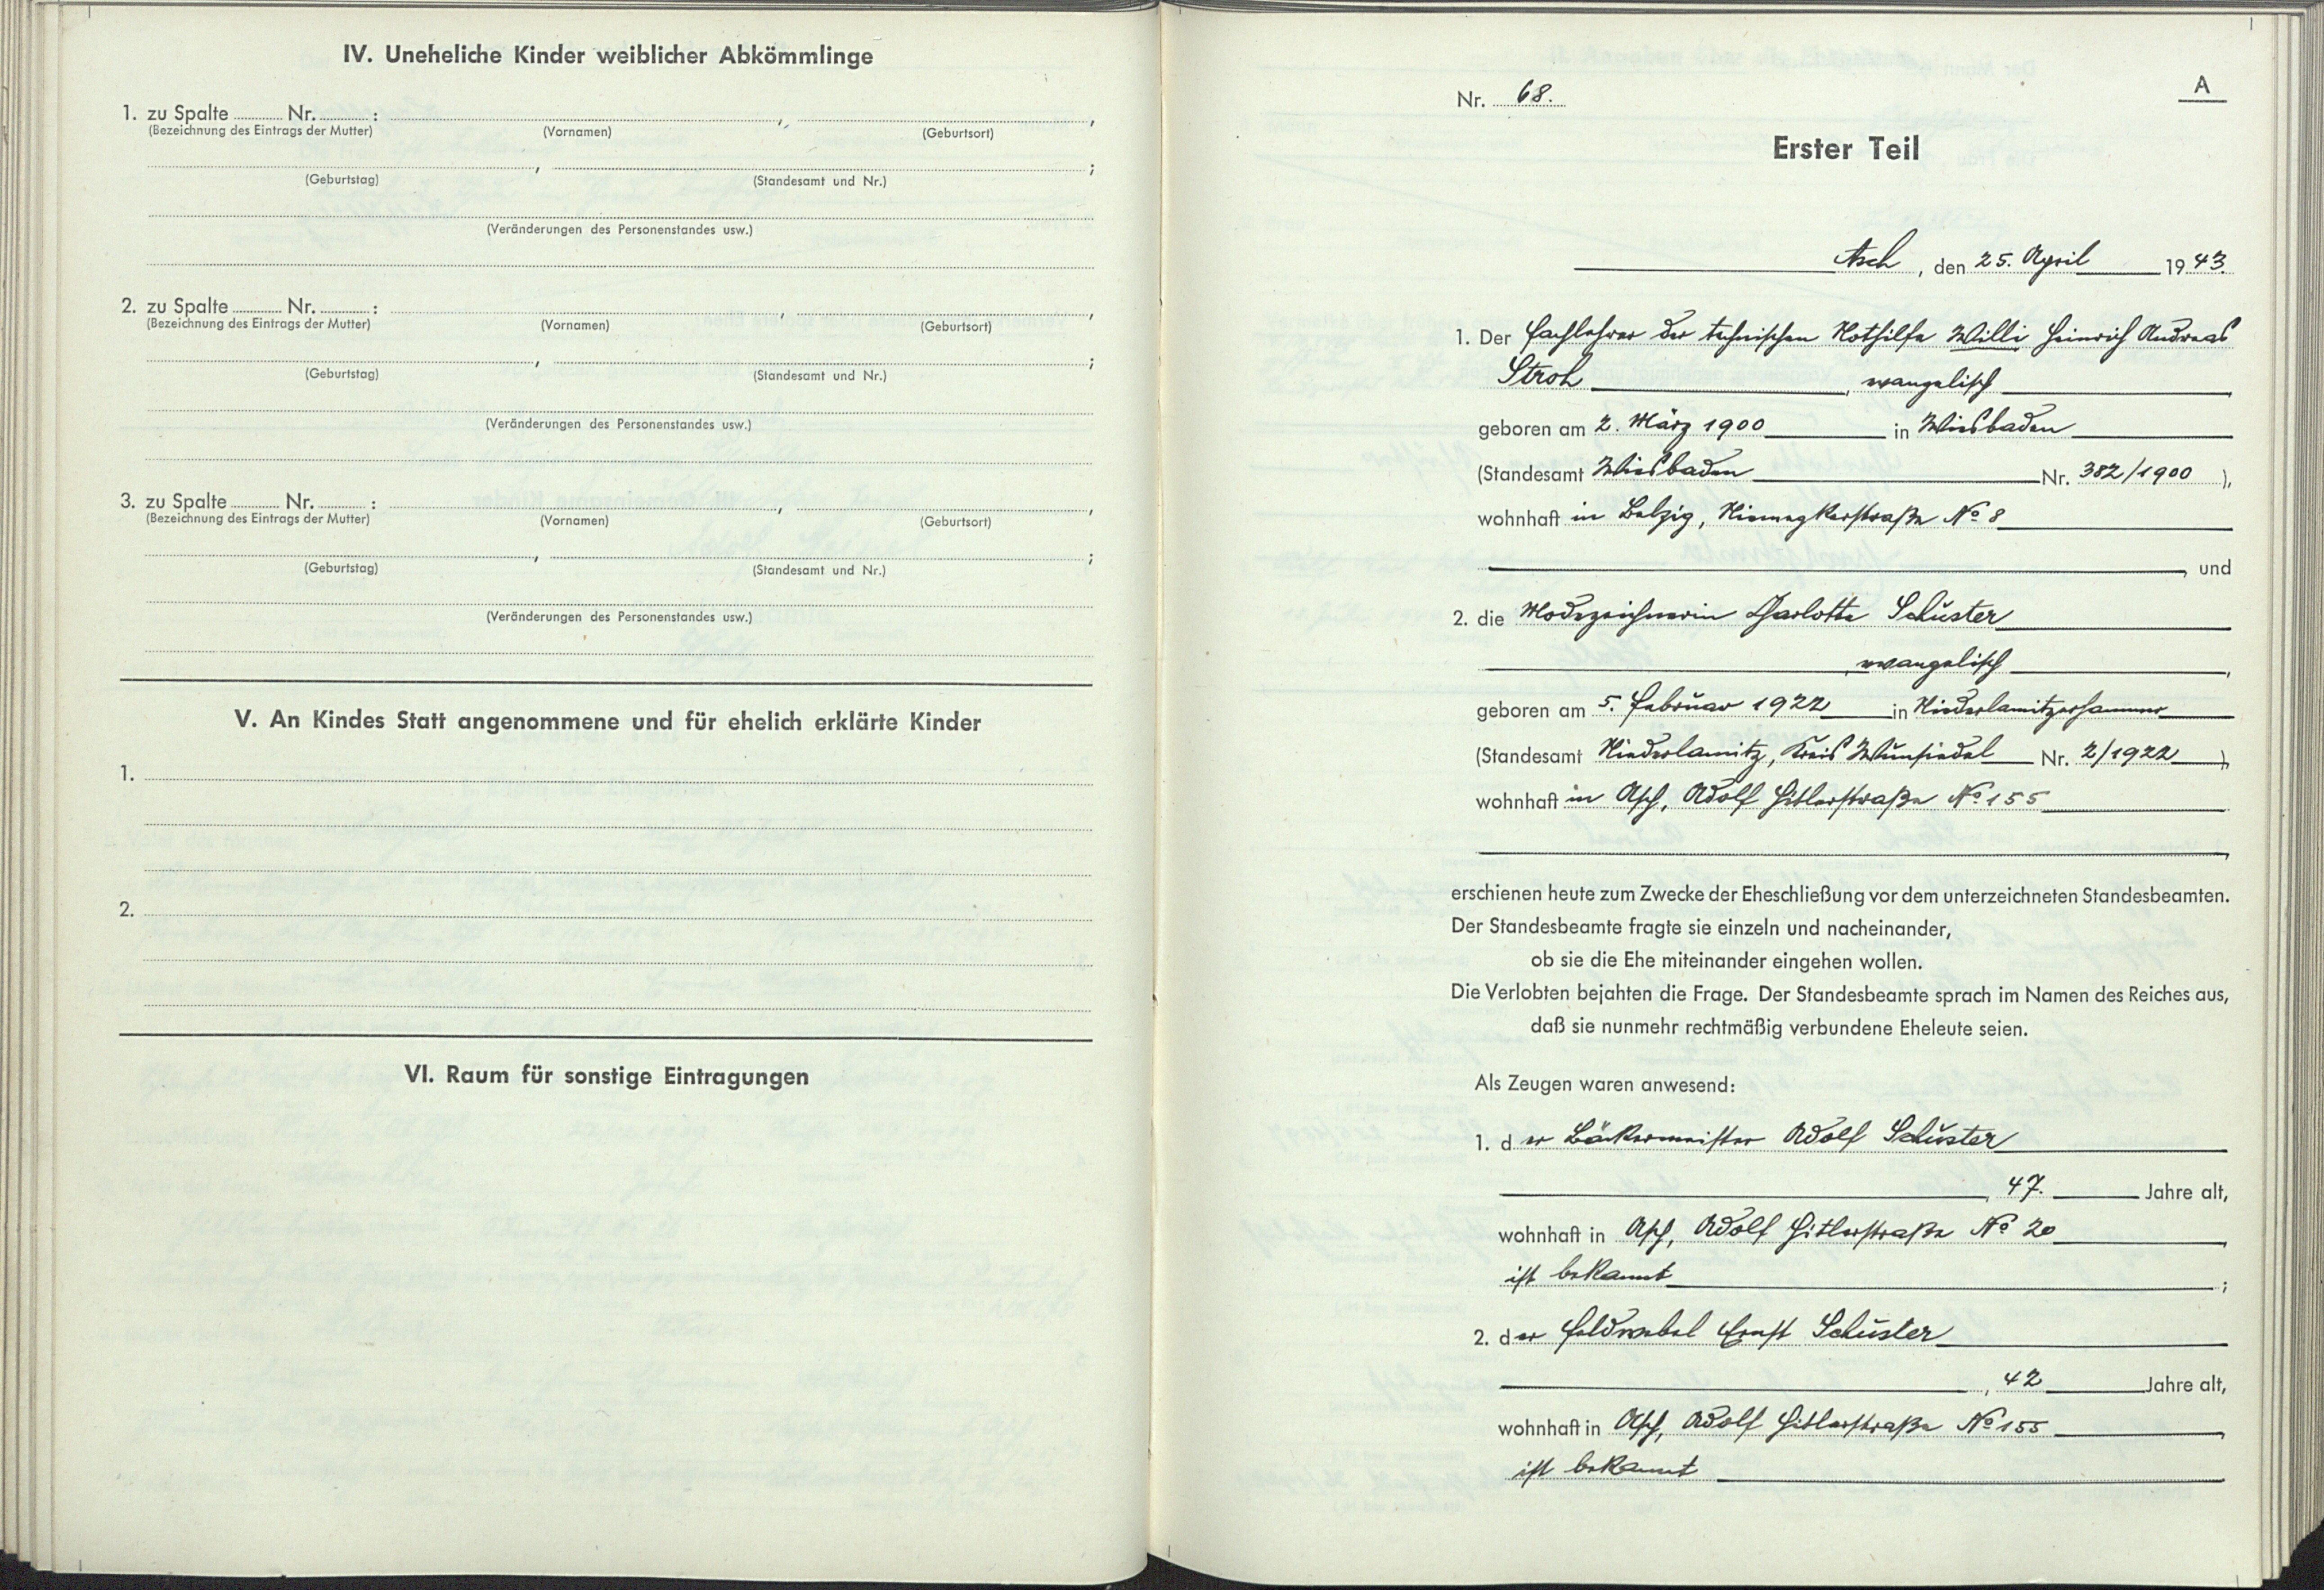 IV. Uneheliche Kinder weiblicher Abkömmlinge
1. zu Spalte ........ Nr. ........ : , ,
(Bezeichnung des Eintrags der Mutter) (Vornamen) (Geburtsort)
, ;
(Geburtstag) (Standesamt und Nr.)
(Veränderungen des Personenstandes usw.)
2. zu Spalte ........ Nr. ........ : , ,
(Bezeichnung des Eintrags der Mutter) (Vornamen) (Geburtsort)
, ;
(Geburtstag) (Standesamt und Nr.)
(Veränderungen des Personenstandes usw.)
3. zu Spalte ........ Nr. ........ : , ,
(Bezeichnung des Eintrags der Mutter) (Vornamen) (Geburtsort)
, ;
(Geburtstag) (Standesamt und Nr.)
(Veränderungen des Personenstandes usw.)
V. An Kindes Statt angenommene und für ehelich erklärte Kinder
1.
2.
VI. Raum für sonstige Eintragungen
A
Nr. 68.
Erster Teil
Asch, den 25. April 1943.
1. Der Fachlehrer der technischen Nothilfe Willi Heinrich Andreas
Stroh, evangelisch,
geboren am 2. März 1900 in Wiesbaden
(Standesamt Wiesbaden Nr. 382/1900 ),
wohnhaft in Belzig, Niemegkerstraße No 8
, und
2. die Modezeichnerin Charlotte Schuster
, evangelisch,
geboren am 5. Februar 1922 in Niederlamitzerhammer
(Standesamt Niederlamitz, Kreis Wunsiedel Nr. 2/1922 )
wohnhaft in Asch, Adolf Hitlerstraße No 155
,
erschienen heute zum Zwecke der Eheschließung vor dem unterzeichneten Standesbeamten.
Der Standesbeamte fragte sie einzeln und nacheinander,
ob sie die Ehe miteinander eingehen wollen.
Die Verlobten bejahten die Frage. Der Standesbeamte sprach im Namen des Reiches aus,
daß sie nunmehr rechtmäßig verbundene Eheleute seien.
Als Zeugen waren anwesend:
1. der Bäckermeister Adolf Schuster
, 47. Jahre alt,
wohnhaft in Asch, Adolf Hitlerstraße No 20,
ist bekannt ;
2. der Feldwebel Ernst Schuster
, 42 Jahre alt,
wohnhaft in Asch, Adolf Hitlerstraße No 155,
ist bekannt